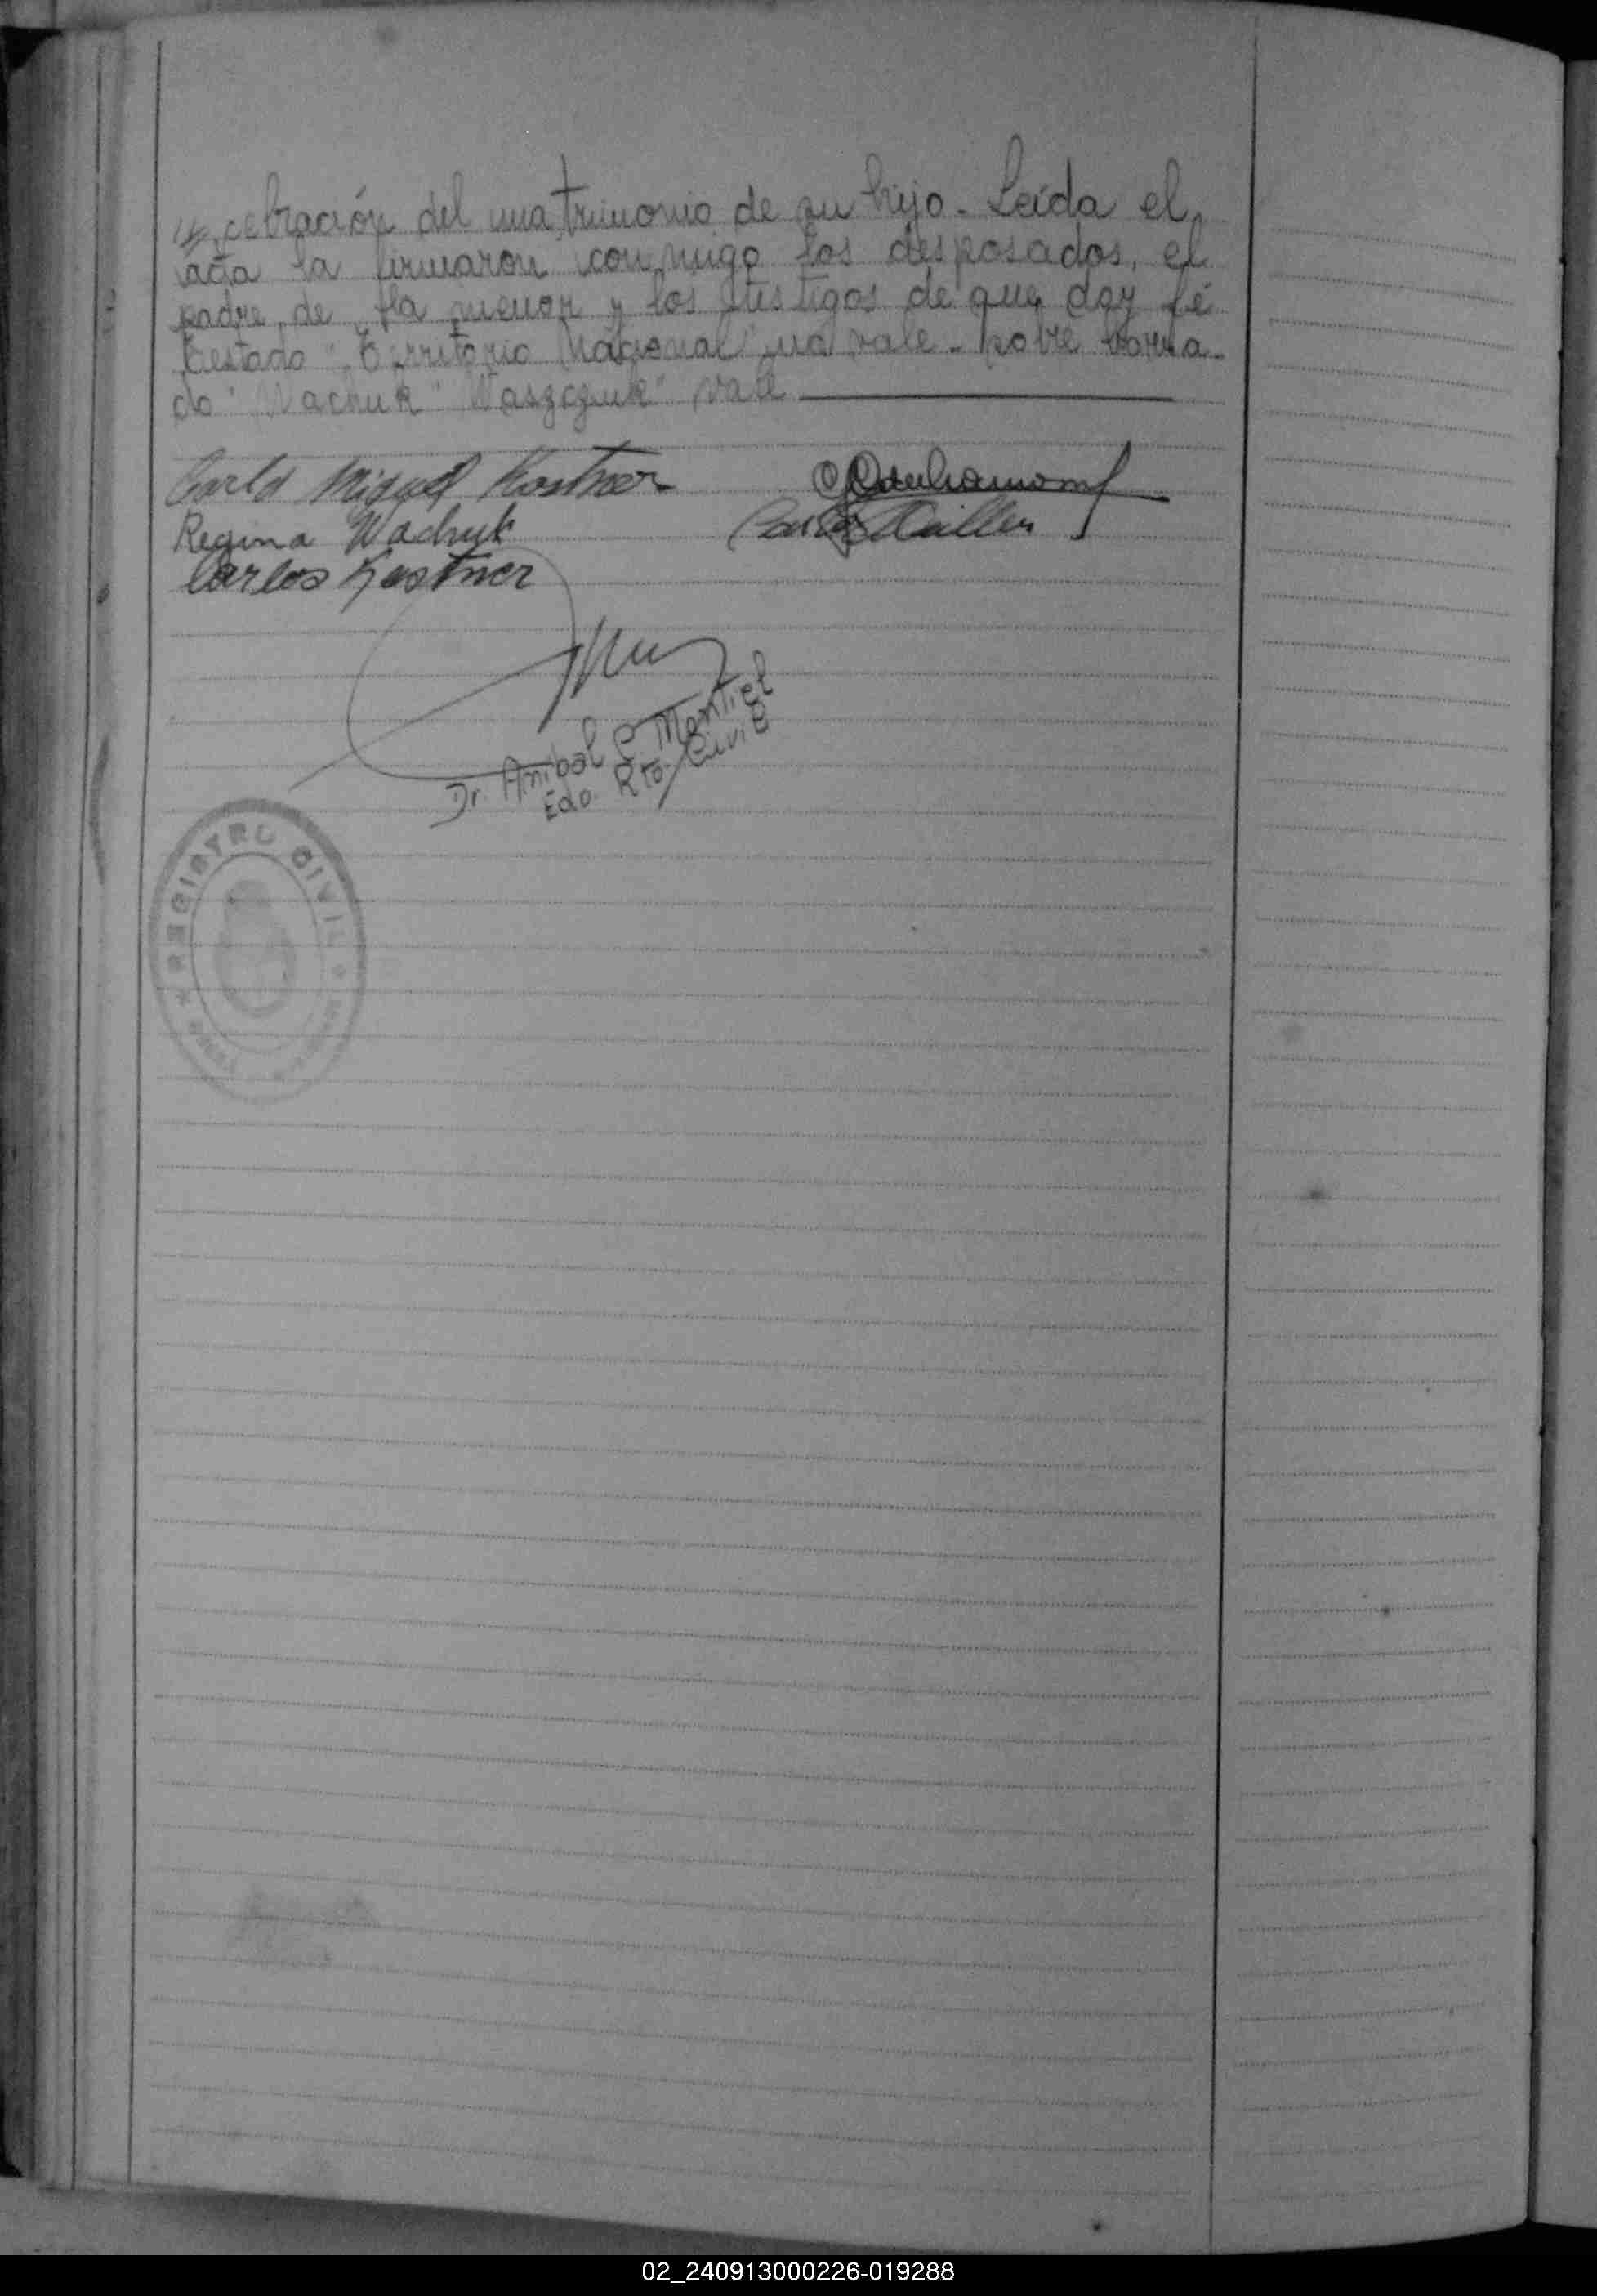 lebración del matrimonio de su hijo - Leída el
acta la firmaron conmigo los desposados, el
padre de la menor y los testigos de que doy fé
Testado "Territorio Nacional" no vale - sobre borra-
do "Wachuk" "Waszczuk" vale
Carlos Miguel Kostner
Regina Wachuk Carlos
Carlos Kostner
Dr. Anibal C. Montiel
Edo. Rto. Civil
REGISTRO CIVIL
02_240913000226-019288